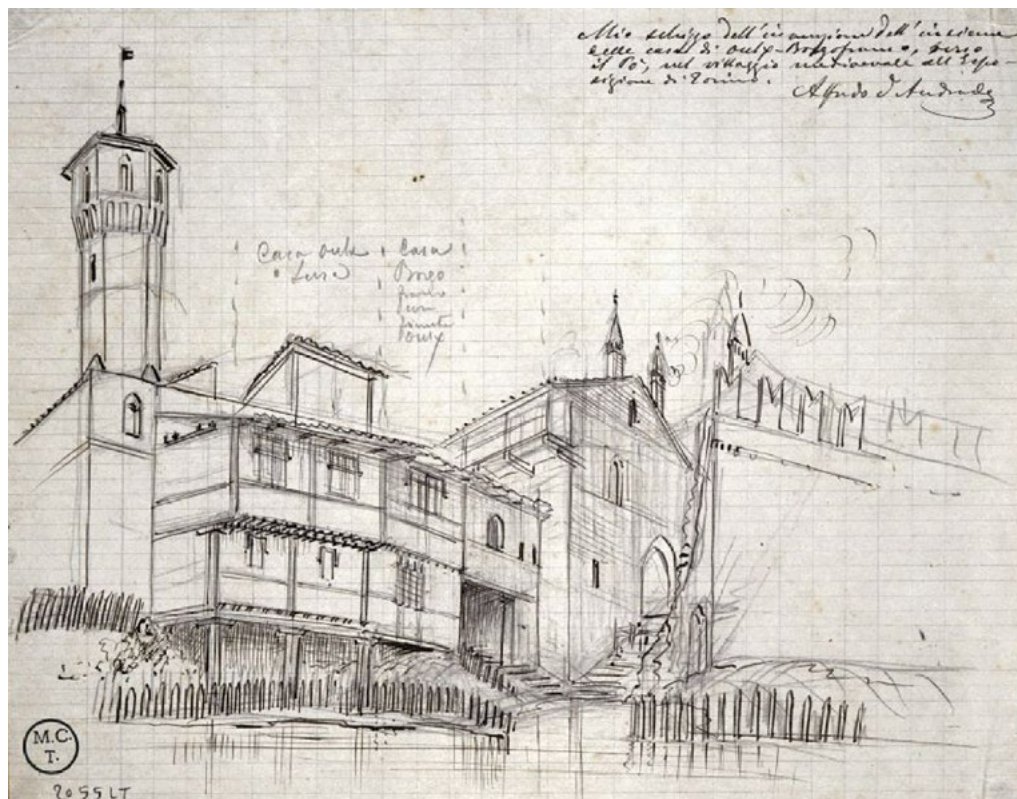 Mio schizzo dell'invenzione dell'insieme
delle case di Oulx-Borgofranco, verso
il Po, nel villaggio medioevale all'Espo-
sizione di Torino.
Alfredo d'Andrade
Casa Oulx
Casa
Borgo
Oulx
M.C.
T.
2055 LT